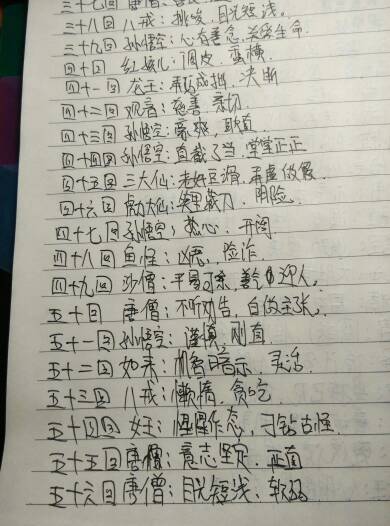 三十七回 唐僧:
三十八回 八戒:挑唆、目光短浅。
三十九回 孙悟空:心存善念、关爱生命.
四十回 红孩儿:调皮、蛮横
四十一回 龙王:决断
四十二回 观音:慈善、亲切.
四十三回 孙悟空:豪爽、耿直
四十四回 孙悟空:直截了当、堂堂正正
四十五回 三大仙:老奸巨滑、弄虚做假.
四十六回 虎力大仙:笑里藏刀、阴险.
四十七回 孙悟空:热心、开朗
四十八回 鱼怪:凶恶、险诈.
四十九回 沙僧:平易可亲、善迎人。
五十回 唐僧:不听劝告、自做主张。
五十一回 孙悟空:谨慎、刚直
五十二回 如来:机智暗示、灵活
五十三回 八戒:懒惰、贪吃
五十四回 女王:惺惺作态、刁钻古怪
五十五回 唐僧:意志坚定、正直
五十六回 唐僧:目光短浅、软弱